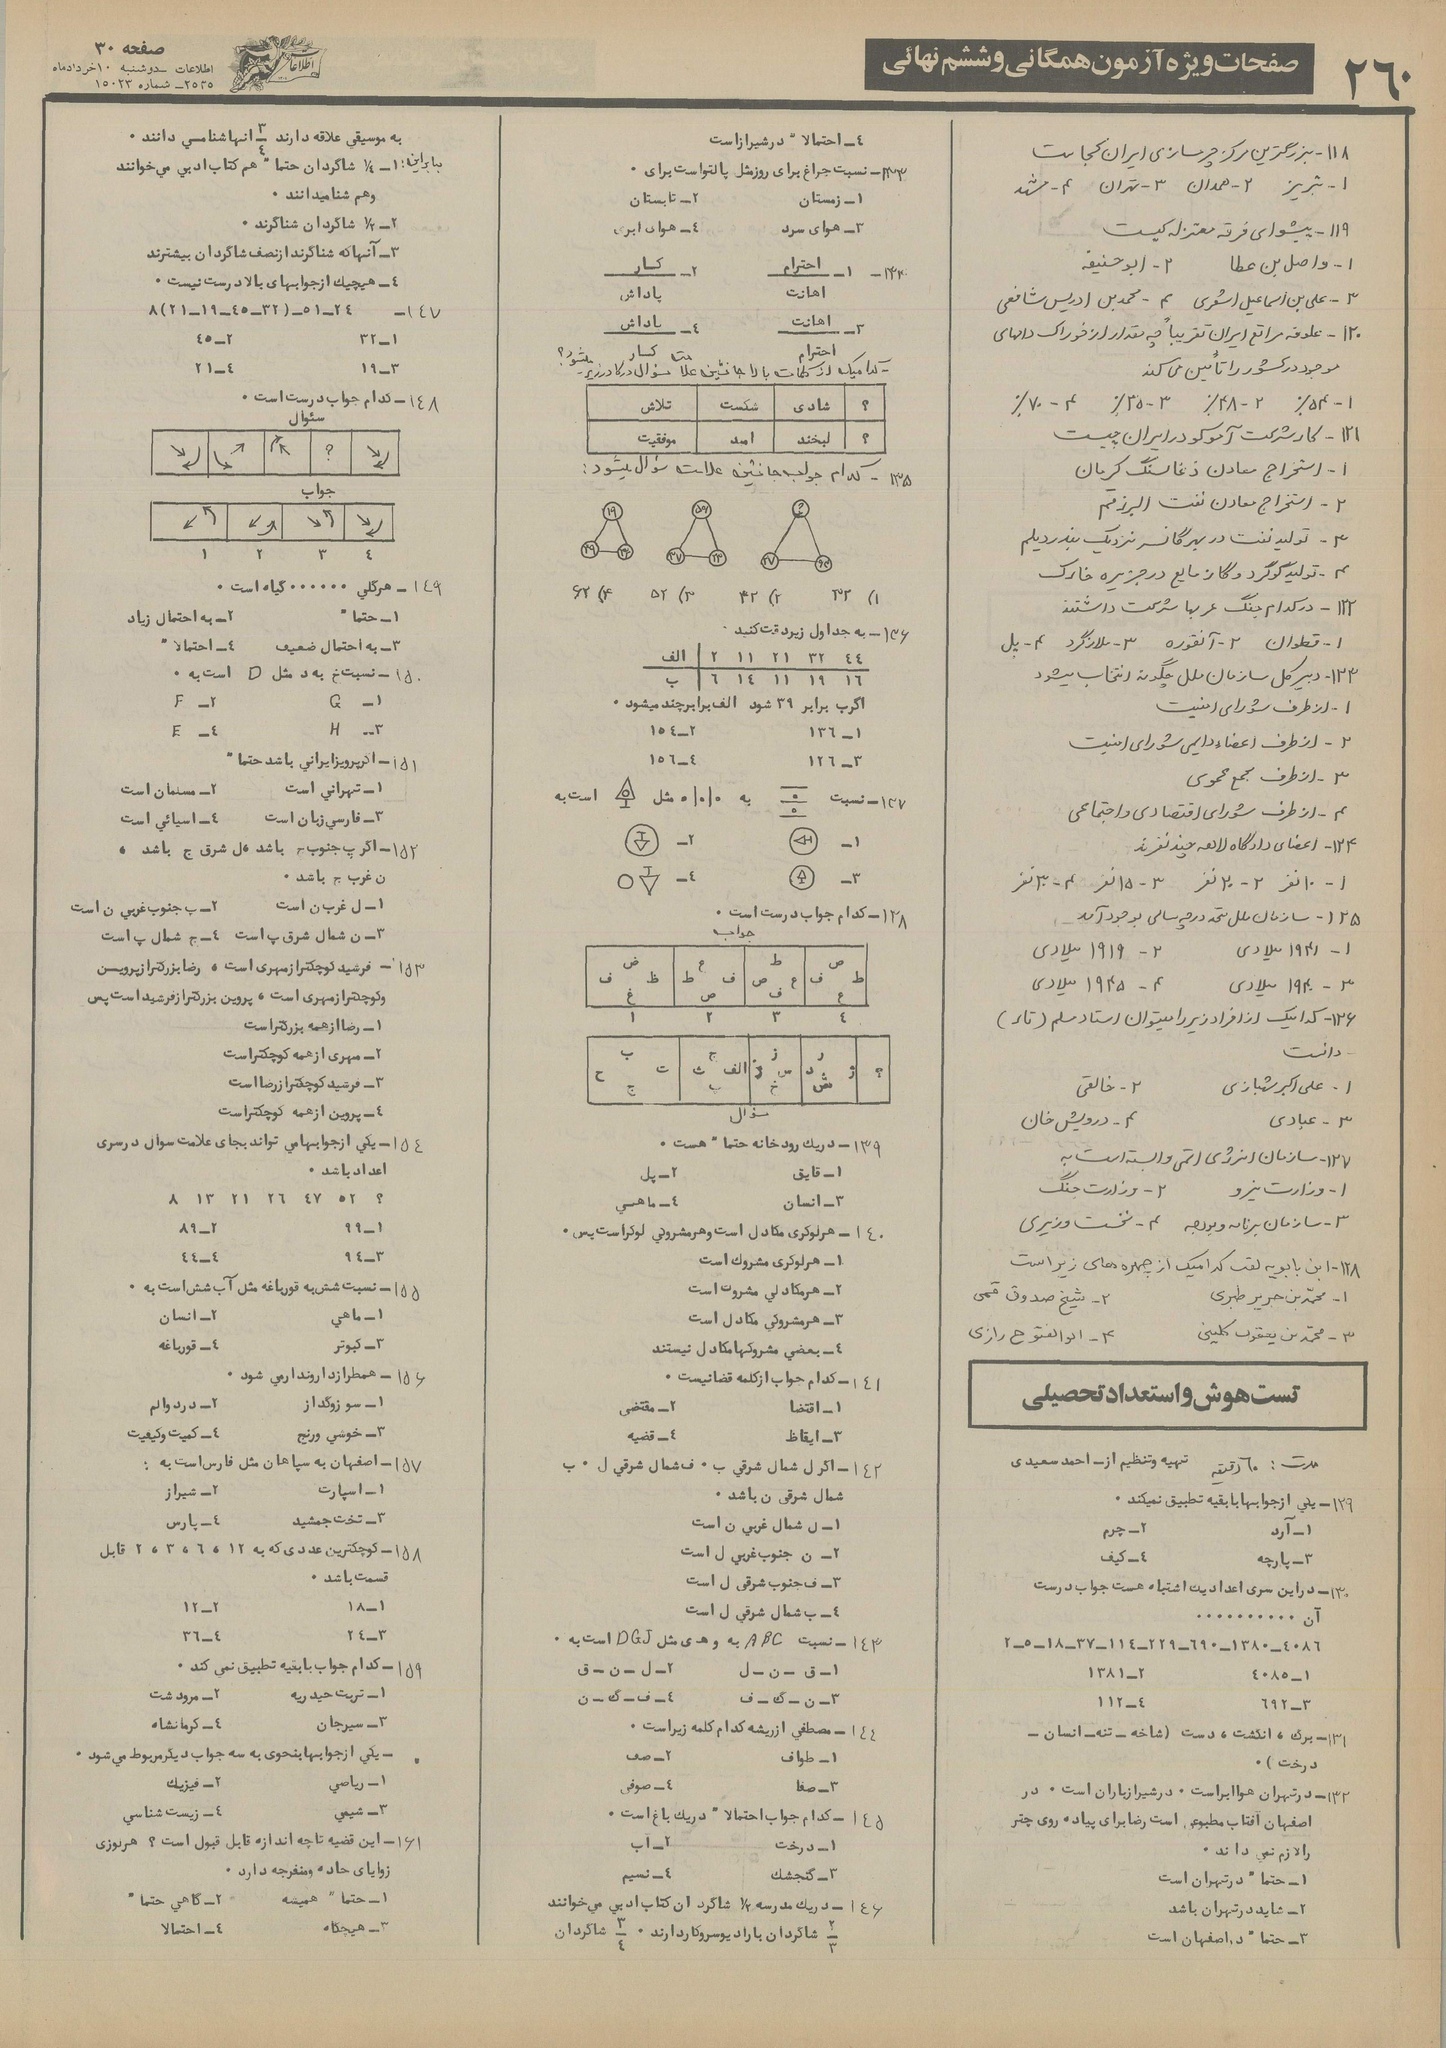 ۲۶۰
صفحات ویژه آزمون همگانی و ششم نهائی
صفحه ۳۰
اطلاعات – دوشنبه ۱۰ خرداد ماه
۲۵۳۵ – شماره ۱۵۰۲۳
۱۱۸- بزرگترین مرکز چرمسازی ایران کجاست
۱- تبریز ۲- همدان ۳- تهران ۴- مشهد
۱۱۹- پیشوای فرقه معتزله کیست
۱- واصل بن عطا ۲- ابوحنیفه
۳- علی بن اسماعیل اشعری ۴- محمد بن ادریس شافعی
۱۲۰- علوفه مراتع ایران تقریباً چه مقدار از خوراک دامهای
موجود در کشور را تأمین می کند
۱- ۵۴٪ ۲- ۴۸٪ ۳- ۳۵٪ ۴- ۷۰٪
۱۲۱- کار شرکت آموکو در ایران چیست
۱- استخراج معادن ذغالسنگ کرمان
۲- استخراج معادن نفت البرز قم
۳- تولید نفت در بهرگانسر نزدیک بندر دیلم
۴- تولید گوگرد و گاز مایع در جزیره خارک
۱۲۲- در کدام جنگ عربها شرکت داشتند
۱- قطوان ۲- آنقوره ۳- ملازگرد ۴- پل
۱۲۳- دبیر کل سازمان ملل چگونه انتخاب میشود
۱- از طرف شورای امنیت
۲- از طرف اعضاء دایمی شورای امنیت
۳- از طرف مجمع عمومی
۴- از طرف شورای اقتصادی و اجتماعی
۱۲۴- اعضای دادگاه لاهه چند نفرند
۱- ۱۰ نفر ۲- ۲۰ نفر ۳- ۱۵ نفر ۴- ۳۰ نفر
۱۲۵- سازمان ملل متحد در چه سالی بوجود آمد
۱- ۱۹۴۱ میلادی ۲- ۱۹۱۹ میلادی
۳- ۱۹۴۰ میلادی ۴- ۱۹۴۵ میلادی
۱۲۶- کدامیک از افراد زیر را میتوان استاد مسلم (تار)
دانست
۱- علی اکبر شهنازی ۲- خالقی
۳- عبادی ۴- درویش خان
۱۲۷- سازمان انرژی اتمی وابسته است به
۱- وزارت نیرو ۲- وزارت جنگ
۳- سازمان برنامه و بودجه ۴- نخست وزیری
۱۲۸- ابن بابویه لقب کدامیک از چهره های زیر است
۱- محمد بن جریر طبری ۲- شیخ صدوق قمی
۳- محمد بن یعقوب کلینی ۴- ابوالفتوح رازی
تست هوش و استعداد تحصیلی
مدت : ۶۰ دقیقه تهیه و تنظیم از – احمد سعیدی
۱۲۹– یکی از جوابها با بقیه تطبیق نمیکند ۰
۱– آرد ۲– چرم
۳– پارچه ۴– کیف
۱۳۰– در این سری اعداد یک اشتباه هست جواب درست
آن ۰۰۰۰۰۰۰۰۰۰
۴۰۸۶–۱۳۸۰–۶۹۰–۲۲۹–۱۱۴–۳۷–۱۸–۵–۲
۱– ۴۰۸۵ ۲– ۱۳۸۱
۳– ۶۹۲ ۴– ۱۱۲
۱۳۱– برگ ، انگشت ، دست (شاخه – تنه – انسان –
درخت ) ۰
۱۳۲– در تهران هوا ابر است ۰ در شیراز باران است ۰ در
اصفهان آفتاب مطبوعی است رضا برای پیاده روی چتر
را لازم نمی داند ۰
۱– حتما" در تهران است
۲– شاید در تهران باشد
۳– حتما" در اصفهان است
۴– احتمالا" در شیراز است
۱۳۳– نسبت چراغ برای روز مثل پالتو است برای ۰
۱– زمستان ۲– تابستان
۳– هوای سرد ۴– هوای ابری
۱۳۴– ۱– احترام ۲– کار
اهانت پاداش
۳– اهانت ۴– پاداش
احترام کار
کدامیک از کلمات بالا جانشین علامت سؤال در کادر زیر میشود ؟
؟ شادی شکست تلاش
؟ لبخند امید موفقیت
۱۳۵– کدام جواب جانشین علامت سؤال میشود :
۱) ۳۲ ۲) ۴۲ ۳) ۵۲ ۴) ۶۲
۱۳۶– به جداول زیر دقت کنید ۰
الف ۲ ۱۱ ۲۱ ۳۲ ۴۴
ب ۶ ۱۴ ۱۱ ۱۹ ۱۶
اگر ب برابر ۳۹ شود الف برابر چند میشود ۰
۱– ۱۳۶ ۲– ۱۵۴
۳– ۱۲۶ ۴– ۱۵۶
۱۳۷– نسبت به مثل است به
۱– ۲–
۳– ۴–
۱۳۸– کدام جواب درست است ۰
جواب
ص ط ع ض
ط ف ع ص ف ط ظ ف
ع ف ص غ
۴ ۳ ۲ ۱
؟ ر ز ج ب
سؤال
۱۳۹– در یک رودخانه حتما" هست ۰
۱– قایق ۲– پل
۳– انسان ۴– ماهی
۱۴۰– هر لوکری مکادل است و هر مشروکی لوکر است پس ۰
۱– هر لوکری مشروک است
۲– هر مکادلی مشروک است
۳– هر مشروکی مکادل است
۴– بعضی مشروکها مکادل نیستند
۱۴۱– کدام جواب از کلمه قضا نیست ۰
۱– اقتضا ۲– مقتضی
۳– ایقاظ ۴– قضیه
۱۴۲– اگر ل شمال شرقی ب ۰ ف شمال شرقی ل ۰ ب
شمال شرقی ن باشد ۰
۱– ل شمال غربی ن است
۲– ن جنوب غربی ل است
۳– ف جنوب شرقی ل است
۴– ب شمال شرقی ل است
۱۴۳– نسبت ABC به و ه ی مثل DGJ است به ۰
۱– ق – ن – ل ۲– ل – ن – ق
۳– ن – گ – ف ۴– ف – گ – ن
۱۴۴– مصطفی از ریشه کدام کلمه زیر است ۰
۱– طواف ۲– صف
۳– صفا ۴– صوفی
۱۴۵– کدام جواب احتمالا" در یک باغ است ۰
۱– درخت ۲– آب
۳– گنجشک ۴– نسیم
۱۴۶– در یک مدرسه ۱/۲ شاگردان کتاب ادبی می‌خوانند
۲/۳ شاگردان با رادیو سروکار دارند ۰ ۳/۴ شاگردان
به موسیقی علاقه دارند ۳/۴ آنها شنا می دانند ۰
بنابراین: ۱– ۱/۴ شاگردان حتما" هم کتاب ادبی می‌خوانند
و هم شنا میدانند ۰
۲– ۱/۲ شاگردان شناگرند ۰
۳– آنها که شناگرند از نصف شاگردان بیشترند
۴– هیچیک از جوابهای بالا درست نیست ۰
۱۴۷– ۲۴–۵۱–(۳۲–۴۵–۱۹–۲۱) ۸
۱– ۳۲ ۲– ۴۵
۳– ۱۹ ۴– ۲۱
۱۴۸– کدام جواب درست است ۰
سئوال
?
جواب
۱ ۲ ۳ ۴
۱۴۹– هر گلی ۰۰۰۰۰۰ گیاه است ۰
۱– حتما" ۲– به احتمال زیاد
۳– به احتمال ضعیف ۴– احتمالا"
۱۵۰– نسبت خ به د مثل D است به ۰
۱– G ۲– F
۳– H ۴– E
۱۵۱– اگر پرویز ایرانی باشد حتما"
۱– تهرانی است ۲– مسلمان است
۳– فارسی زبان است ۴– اسیائی است
۱۵۲– اگر پ جنوب ج باشد ، ل شرق ج باشد ،
ن غرب ج باشد ۰
۱– ل غرب ن است ۲– ب جنوب غربی ن است
۳– ن شمال شرق پ است ۴– ج شمال پ است
۱۵۳– فرشید کوچکتر از مهری است ، رضا بزرگتر از پرویسن
و کوچکتر از مهری است ، پروین بزرگتر از فرشید است پس
۱– رضا از همه بزرگتر است
۲– مهری از همه کوچکتر است
۳– فرشید کوچکتر از رضا است
۴– پروین از همه کوچکتر است
۱۵۴– یکی از جوابها می تواند بجای علامت سوال در سری
اعداد باشد ۰
؟ ۵۲ ۴۷ ۲۶ ۲۱ ۱۳ ۸
۱– ۹۹ ۲– ۸۹
۳– ۹۴ ۴– ۴۴
۱۵۵– نسبت شش به قورباغه مثل آب شش است به ۰
۱– ماهی ۲– انسان
۳– کبوتر ۴– قورباغه
۱۵۶– همطراز دارو ندار می شود ۰
۱– سوز و گداز ۲– درد و الم
۳– خوشی و رنج ۴– کمیت و کیفیت
۱۵۷– اصفهان به سپاهان مثل فارس است به :
۱– اسپارت ۲– شیراز
۳– تخت جمشید ۴– پارس
۱۵۸– کوچکترین عددی که به ۱۲ ، ۶ ، ۳ ، ۲ قابل
قسمت باشد ۰
۱– ۱۸ ۲– ۱۲
۳– ۲۴ ۴– ۳۶
۱۵۹– کدام جواب با بقیه تطبیق نمی کند ۰
۱– تربت حیدریه ۲– مرودشت
۳– سیرجان ۴– کرمانشاه
– یکی از جوابها بنحوی به سه جواب دیگر مربوط می شود ۰
۱– ریاضی ۲– فیزیک
۳– شیمی ۴– زیست شناسی
۱۶۱– این قضیه تا چه اندازه قابل قبول است ؟ هر لوزی
زوایای حاده و منفرجه دارد ۰
۱– حتما" همیشه ۲– گاهی حتما"
۳– هیچگاه ۴– احتمالا